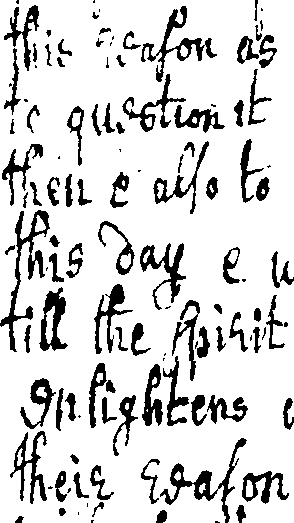 this reason as
to question it
then & also to
this day & u
till the spirit
Inlightens
their reason